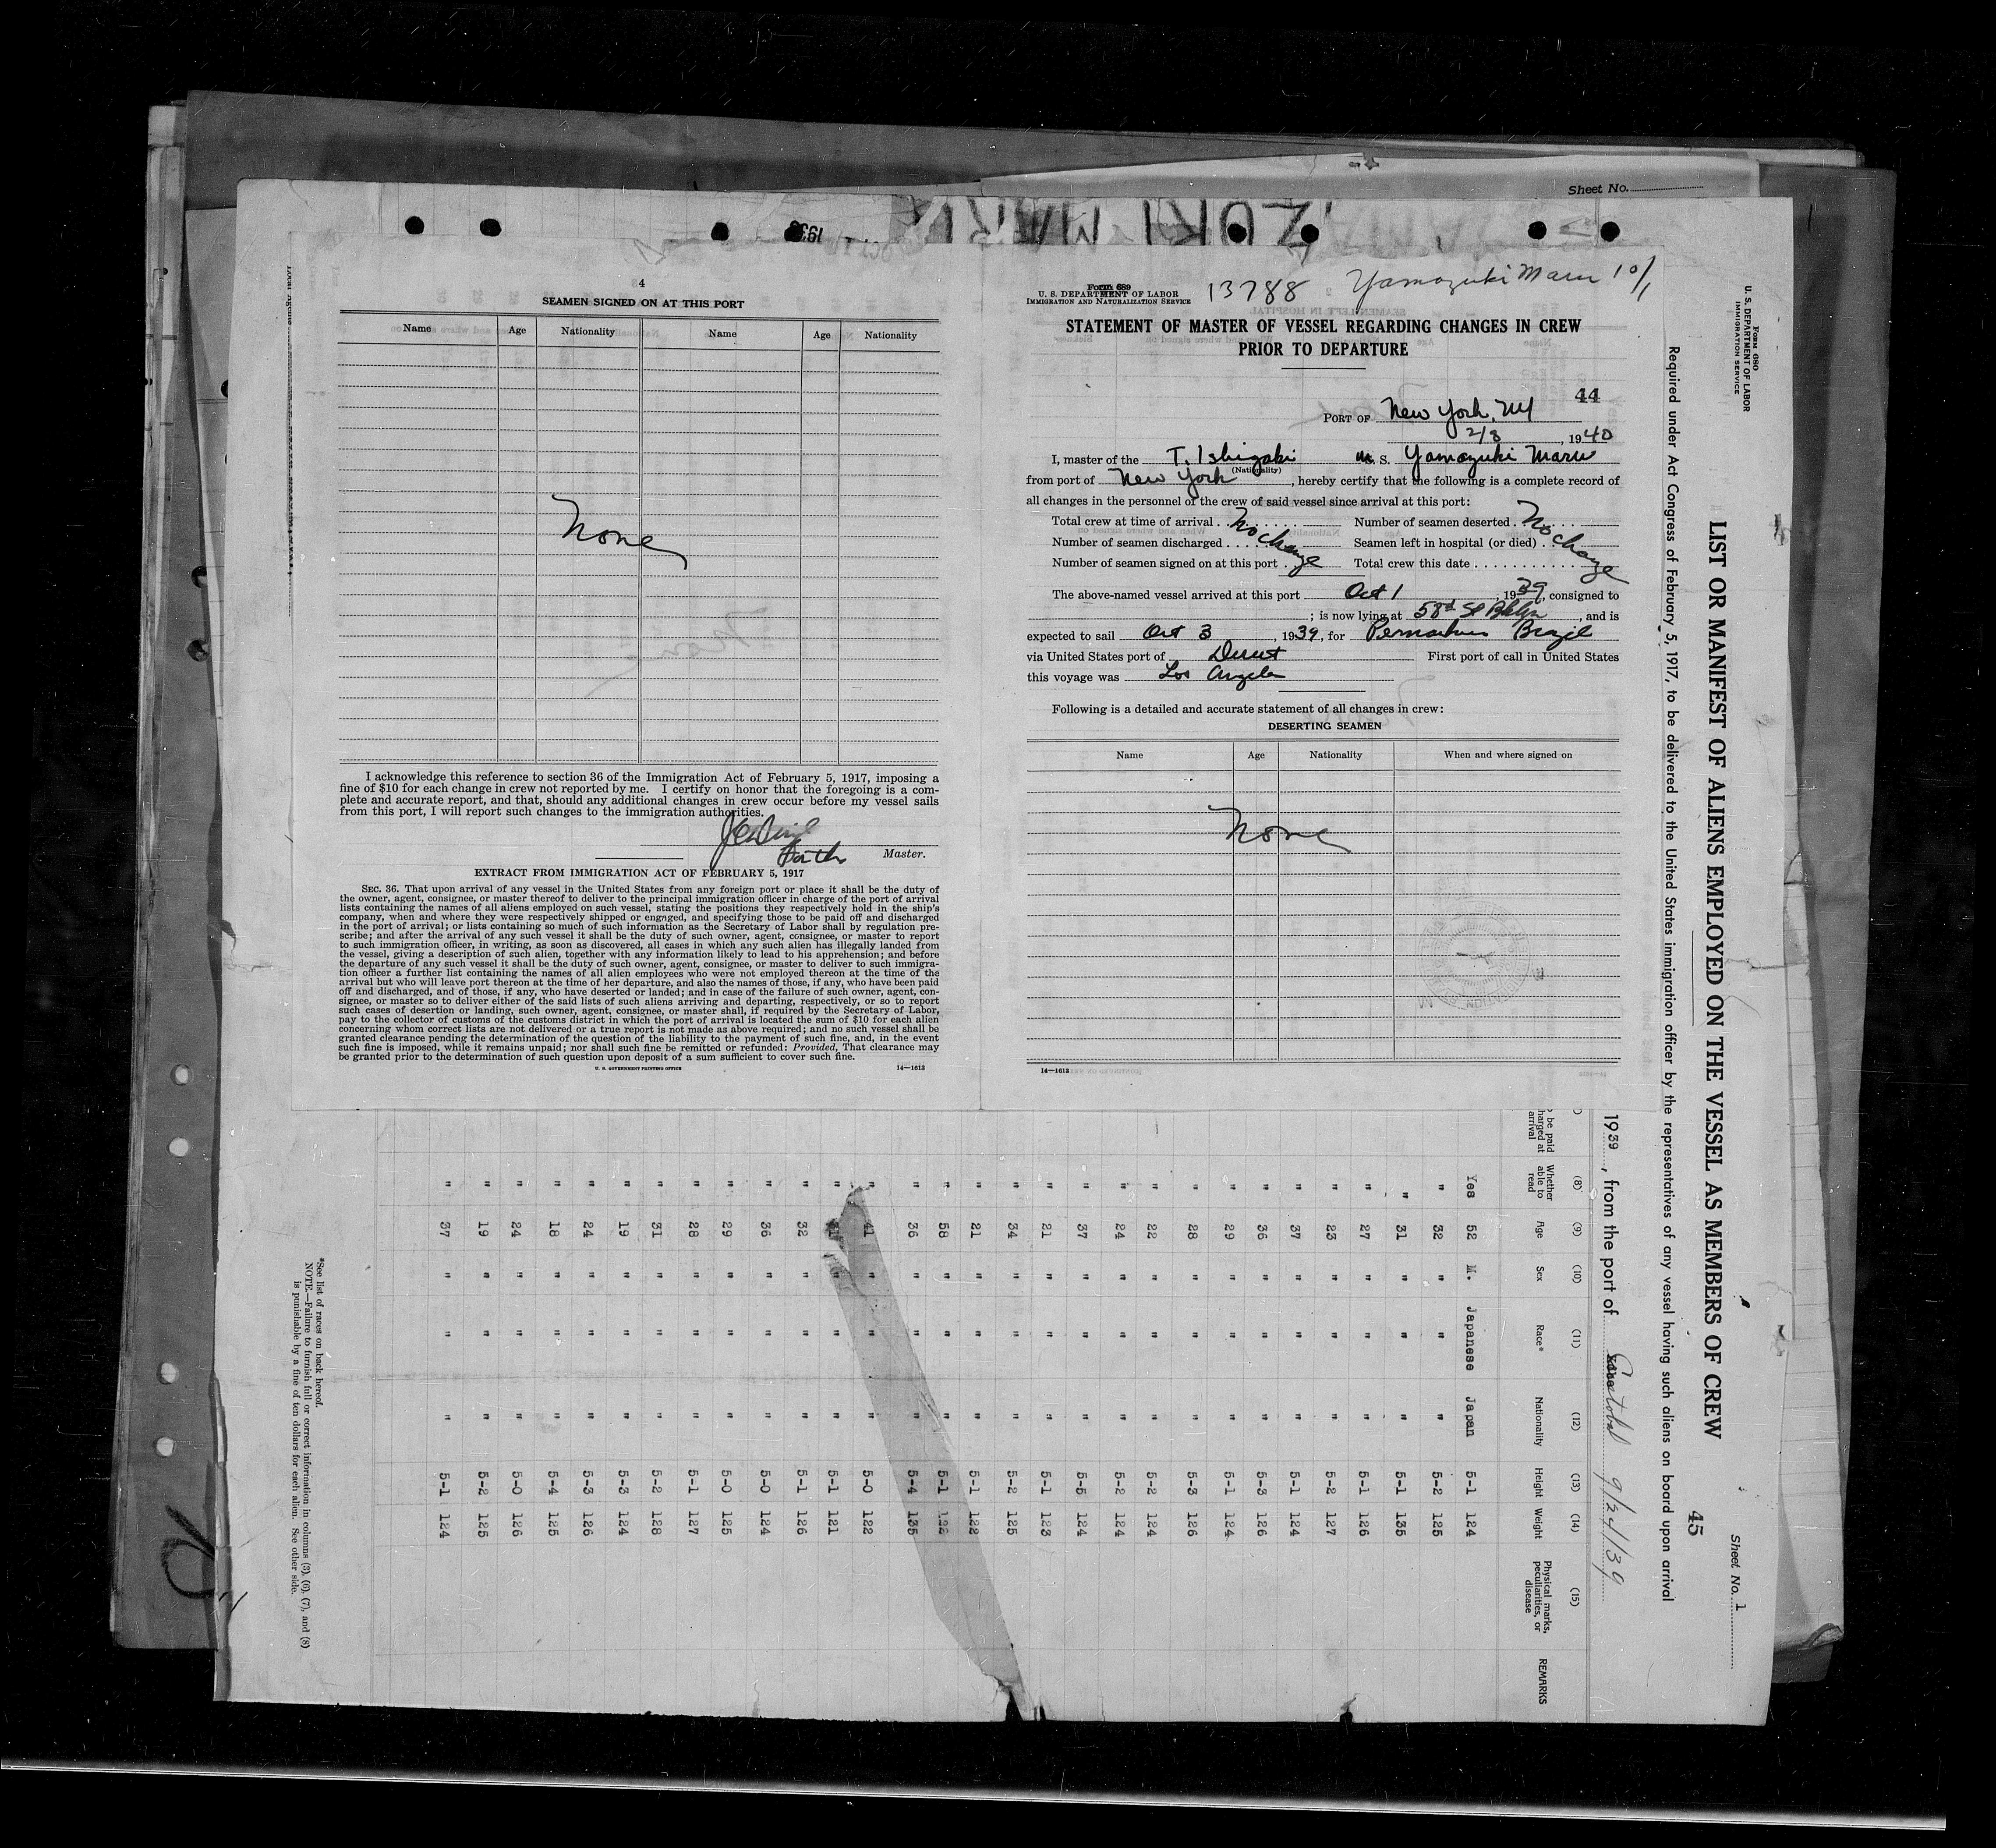 Sheet No.
1939
4
SEAMEN SIGNED ON AT THIS PORT
Name Age Nationality Name Age Nationality
None
I acknowledge this reference to section 36 of the Immigration Act of February 5, 1917, imposing a
fine of $10 for each change in crew not reported by me. I certify on honor that the foregoing is a com-
plete and accurate report, and that, should any additional changes in crew occur before my vessel sails
from this port, I will report such changes to the immigration authorities.
Master.
EXTRACT FROM IMMIGRATION ACT OF FEBRUARY 5, 1917
SEC. 36. That upon arrival of any vessel in the United States from any foreign port or place it shall be the duty of
the owner, agent, consignee, or master thereof to deliver to the principal immigration officer in charge of the port of arrival
lists containing the names of all aliens employed on such vessel, stating the positions they respectively hold in the ship's
company, when and where they were respectively shipped or engnged, and specifying those to be paid off and discharged
in the port of arrival; or lists containing so much of such information as the Secretary of Labor shall by regulation pre-
scribe; and after the arrival of any such vessel it shall be the duty of such owner, agent, consignee, or master to report
to such immigration officer, in writing, as soon as discovered, all cases in which any such alien has illegally landed from
the vessel, giving a description of such alien, together with any information likely to lead to his apprehension; and before
the departure of any such vessel it shall be the duty of such owner, agent, consignee, or master to deliver to such immigra-
tion officer a further list containing the names of all alien employees who were not employed thereon at the time of the
arrival but who will leave port thereon at the time of her departure, and also the names of those, if any, who have been paid
off and discharged, and of those, if any, who have deserted or landed; and in case of the failure of such owner, agent, con-
signee, or master so to deliver either of the said lists of such aliens arriving and departing, respectively, or so to report
such cases of desertion or landing, such owner, agent, consignee, or master shall, if required by the Secretary of Labor,
pay to the collector of customs of the customs district in which the port of arrival is located the sum of $10 for each alien
concerning whom correct lists are not delivered or a true report is not made as above required; and no such vessel shall be
granted clearance pending the determination of the question of the liability to the payment of such fine, and, in the event
such fine is imposed, while it remains unpaid; nor shall such fine be remitted or refunded: Provided, That clearance may
be granted prior to the determination of such question upon deposit of a sum sufficient to cover such fine.
U. S. GOVERNMENT PRINTING OFFICE 14—1613
Form 689
U. S. DEPARTMENT OF LABOR
IMMIGRATION AND NATURALIZATION SERVICE
13788 Yamazuki Maru 10/1
STATEMENT OF MASTER OF VESSEL REGARDING CHANGES IN CREW
PRIOR TO DEPARTURE
44
PORT OF New York, NY
2/8, 1940
I, master of the T. Ishigaki M. S. Yamazuki Maru
(Nationality)
from port of New York, hereby certify that the following is a complete record of
all changes in the personnel of the crew of said vessel since arrival at this port:
Total crew at time of arrival . . No change Number of seamen deserted . No change
Number of seamen discharged . . . . Seamen left in hospital (or died) . .
Number of seamen signed on at this port . Total crew this date . . . . . . . . . . . .
The above-named vessel arrived at this port Oct 1, 1939, consigned to
; is now lying at 58th St Bklyn, and is
expected to sail Oct 3, 1939, for Brazil
via United States port of Direct First port of call in United States
this voyage was Los Angeles
Following is a detailed and accurate statement of all changes in crew:
DESERTING SEAMEN
Name Age Nationality When and where signed on
None
14—1613
Form 680
U. S. DEPARTMENT OF LABOR
IMMIGRATION SERVICE
Sheet No. 1
LIST OR MANIFEST OF ALIENS EMPLOYED ON THE VESSEL AS MEMBERS OF CREW
45
Required under Act Congress of February 5, 1917, to be delivered to the United States immigration officer by the representatives of any vessel having such aliens on board upon arrival
1939, from the port of Cristobal 9/24/39
(8) (9) (10) (11) (12) (13) (14) (15)
be paid
arrival
Whether able to read Age Sex Race* Nationality Height Weight Physical marks, peculiarities, or disease REMARKS
Yes 52 M. Japanese Japan 5-1 124
" 32 " " " 5-2 125
" 31 " " " 5-1 135
" 27 " " " 5-1 126
" 23 " " " 5-2 127
" 37 " " " 5-1 124
" 36 " " " 5-3 126
" 29 " " " 5-1 124
" 28 " " " 5-3 126
" 22 " " " 5-2 124
" 24 " " " 5-2 124
" 37 " " " 5-5 124
" 21 " " " 5-1 123
" 34 " " " 5-2 125
" 21 " " " 5-1 122
" 58 " " " 5-1 122
" 36 " " " 5-4 125
" 41 " " " 5-0 122
" " " " 5-1 121
" 32 " " " 5-1 126
" 36 " " " 5-0 124
" 29 " " " 5-0 125
" 28 " " " 5-1 127
" 31 " " " 5-2 128
" 19 " " " 5-3 124
" 24 " " " 5-3 126
" 18 " " " 5-4 125
" 24 " " " 5-0 126
" 19 " " " 5-2 125
" 37 " " " 5-1 124
*See list of races on back hereof.
NOTE.—Failure to furnish full or correct information in columns (3), (6), (7), and (8)
is punishable by a fine of ten dollars for each alien. See other side.